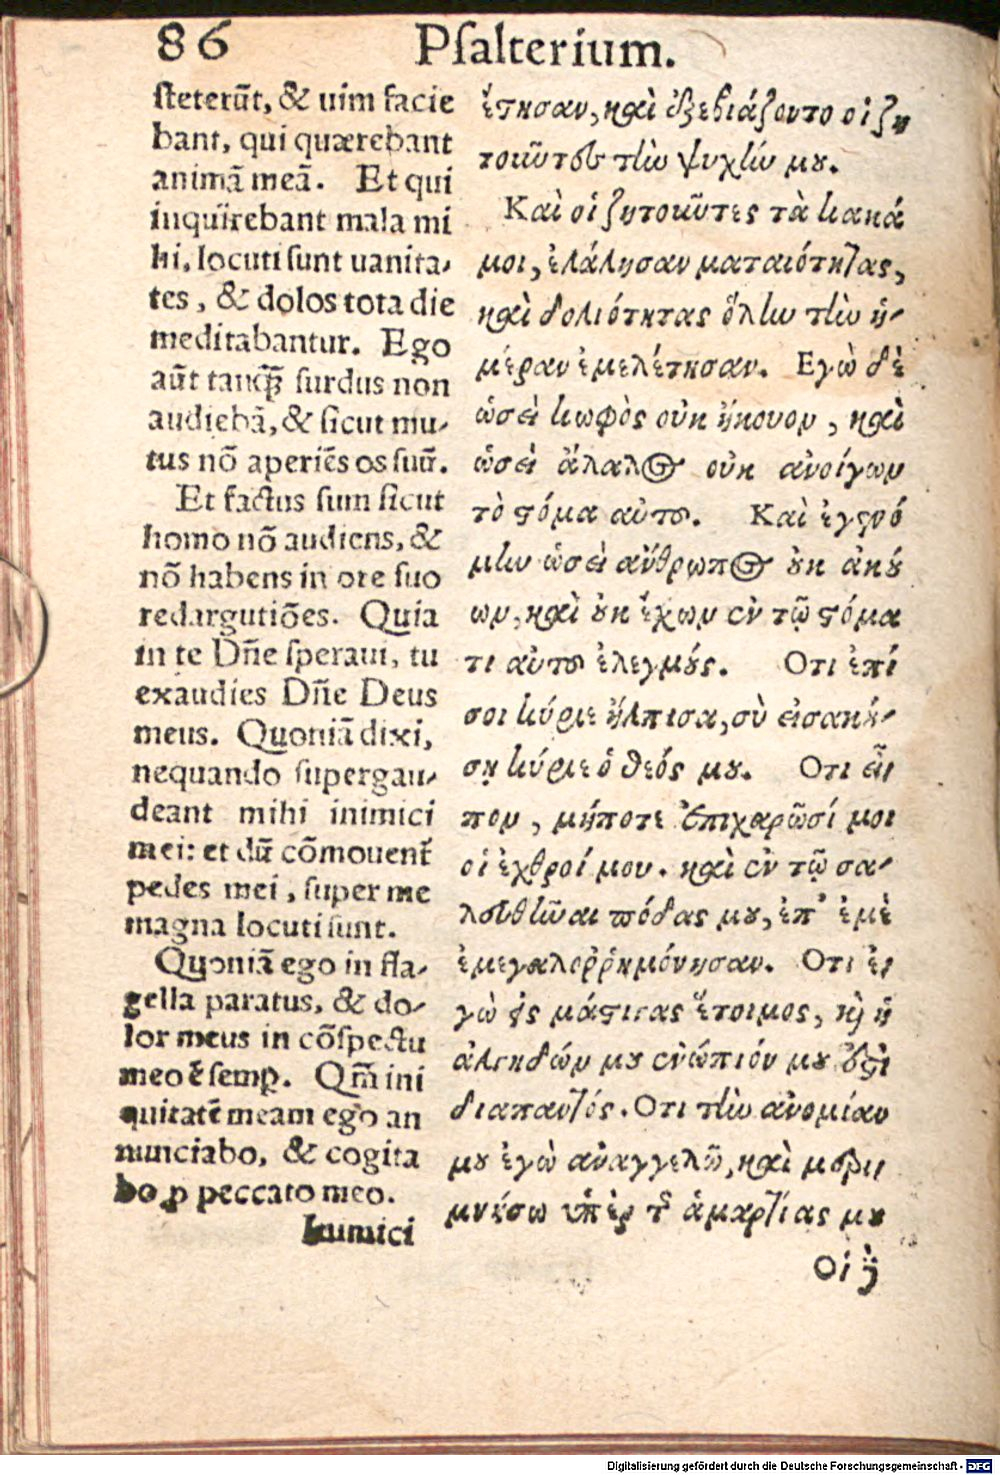 86 Psalterium.
steterūt, & uim facie
bant, qui quærebant
animā meā. Et qui
inquirebant mala mi
hi, locuti sunt uanita-
tes, & dolos tota die
meditabantur. Ego
aūt tanq̄ surdus non
audiebā, & sicut mu-
tus nō aperiēs os suū.
Et factus sum sicut
homo nō audiens, &
nō habens in ore suo
redargutiōes. Quia
in te Dñe speraui, tu
exaudies Dñe Deus
meus. Quoniā dixi,
nequando supergau-
deant mihi inimici
mei: et dū cōmouent̄
pedes mei, super me
magna locuti sunt.
Quoniā ego in fla-
gella paratus, & do-
lor meus in cōspectu
meo ē semꝑ. Qm̄ ini
quitatē meam ego an
nunciabo, & cogita
bo ꝓ peccato meo.
Inimici
ἔστησαν, καὶ ἐξεβιάζοντο οἱ ζη
τοιῦτες τὴν ψυχήν μου.
Καὶ οἱ ζητοιῦτες τὰ κακά
μοι, ἐλάλησαν ματαιότητας,
καὶ δολιότητας ὅλην τὴν ἡ-
μέραν ἐμελέτησαν. Εγὼ δὲ
ὡσεὶ κωφὸς οὐκ ἤκουον, καὶ
ὡσεὶ ἄλαλος οὐκ ἀνοίγων
τὸ στόμα αὐτοῦ. Καὶ ἐγενό
μην ὡσεὶ ἄνθρωπος οὐκ ἀκού
ων, καὶ οὐκ ἔχων ἐν τῷ στόμα
τι αὐτοῦ ἐλεγμούς. Οτι ἐπί
σοι κύριε ἤλπισα, σὺ εἰσακού-
σῃ κύριε ὁ θεός μου. Οτι εἶ
πον, μήποτε ἐπιχαρῶσί μοι
οἱ ἐχθροί μου. καὶ ἐν τῷ σα-
λευθῆναι πόδας μου, ἐπ' ἐμὲ
ἐμεγαλοῤῥημόνησαν. Οτι ἐ
γὼ εἰς μάστιγας ἕτοιμος, καὶ ἡ
ἀλγηδών μου ἐνώπιόν μου ἐστι
διαπαντός. Οτι τὴν ἀνομίαν
μου ἐγὼ ἀναγγελῶ, καὶ μερι
μνήσω ὑπὲρ τῆς ἁμαρτίας μου
Οἱ δὲ
Digitalisierung gefördert durch die Deutsche Forschungsgemeinschaft - DFG